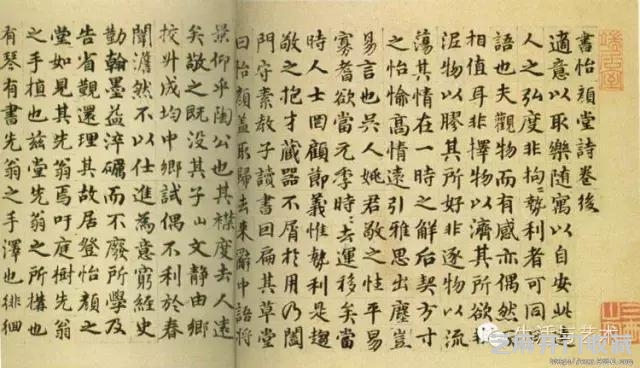 書怡顏堂詩卷後
適意以取樂隨寓以自安此
人之弘度非拘勢利者可同
語也夫觀物而有感亦偶然
相值耳非擇物以濟其所欲
泥物以膠其所好非逐物以流
蕩其情在一時之解后契方寸
之怡愉高情遠引雅思出塵豈
易言也吳人姚君敬之性平易
寡耆欲當元季時去運移矣當
時人士罔顧節義惟勢利是趨
敬之抱才蔵器不屑於用乃闔
門守素教子讀書回扁其草堂
曰怡顏盖取歸去來辭中語將
景仰乎陶公也其襟度去人遠
矣敬之既没其子山文静由鄉
校升成均中鄉試偶不利於春
闈澹然不以仕進為意窮經史
勸翰墨益淬礪而不廢所學及
告省觀還理其故居登怡顏之
堂如見其先翁焉吁庭樹先翁
之手植也兹堂先翁之所構也
有琴有書先翁之手澤也徘徊
生活与艺术